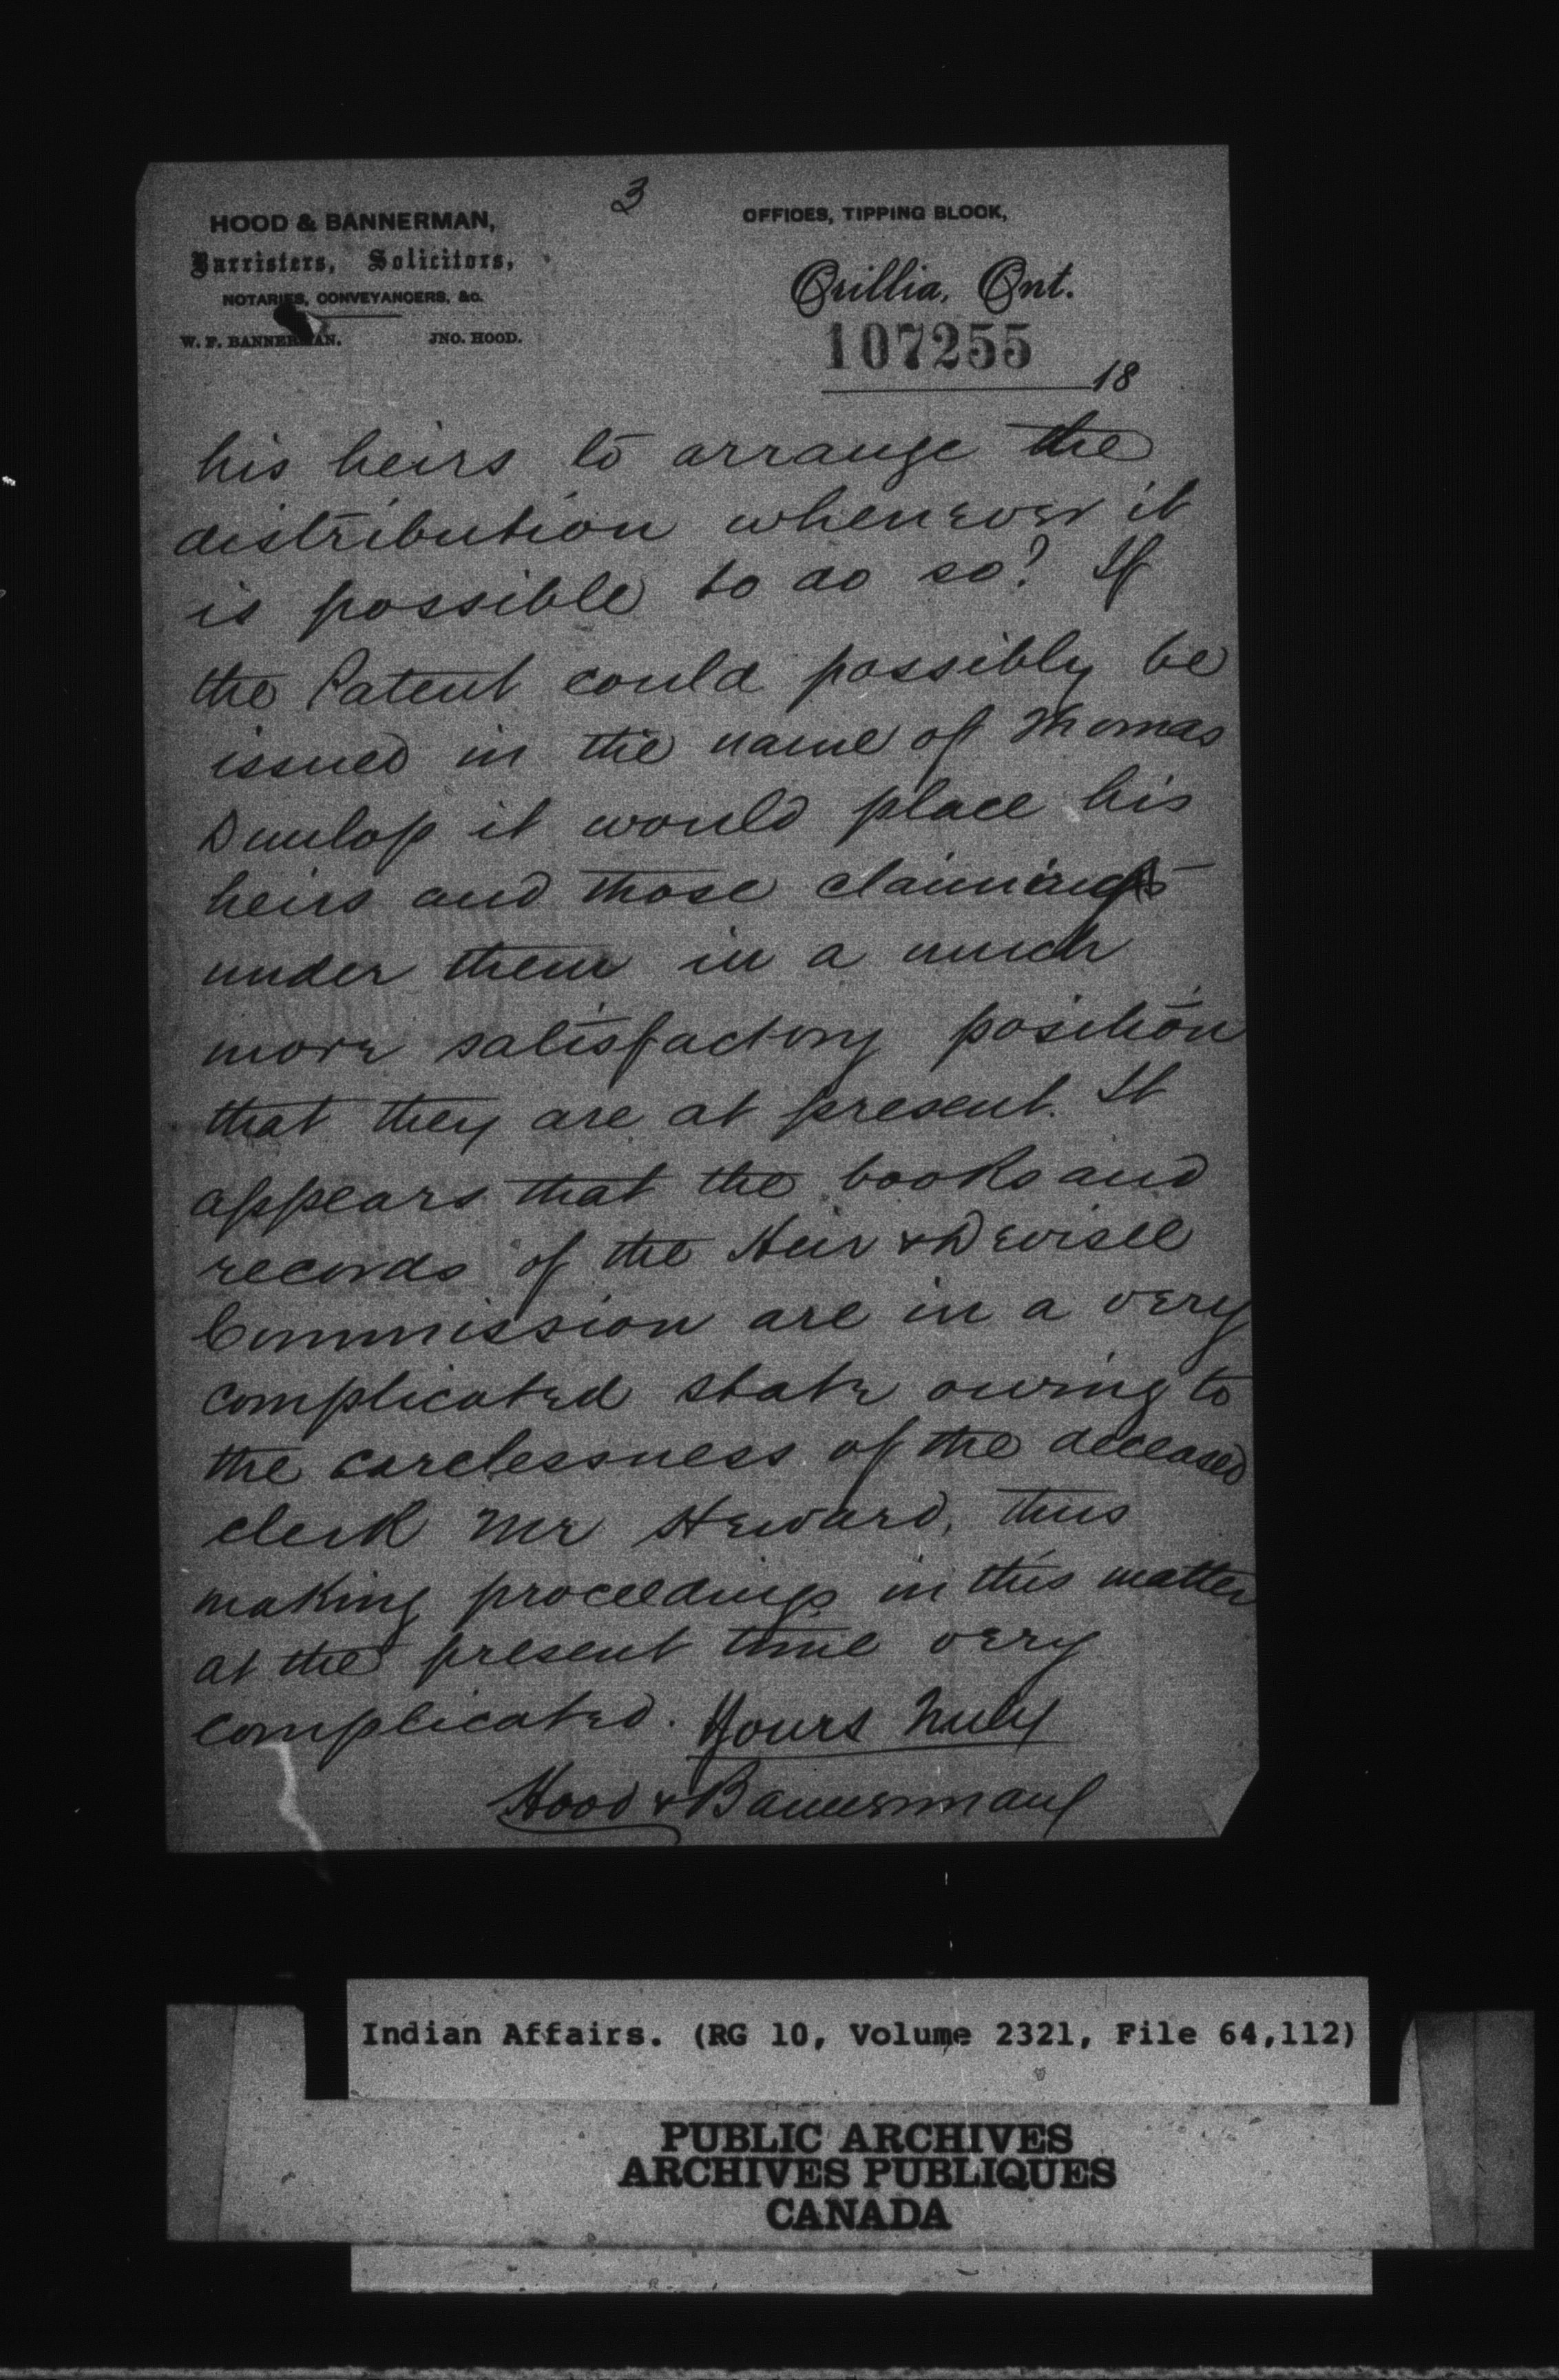 3
HOOD & BANNERMAN,
Barristers, Solicitors,
NOTARIES, CONVEYANCERS, &c.
W. F. BANNERMAN. JNO. HOOD.
OFFICES, TIPPING BLOCK,
Orillia, Ont.
107255
18
his heirs to arrange the
distribution whenever it
is possible to do so? If
the Patent could possibly be
issued in the name of Thomas
Dunlop it would place his
heirs and those claiming
under them in a much
more satisfactory position
that they are at present. It
appears that the books and
records of the Heir & Devisee
Commission are in a very
complicated state owing to
the carelessness of the deceased
clerk Mr Heward, thus
making proceedings in this matter
at the present time very
complicated. Yours truly
Hood & Bannerman
Indian Affairs. (RG 10, Volume 2321, File 64,112)
PUBLIC ARCHIVES
ARCHIVES PUBLIQUES
CANADA